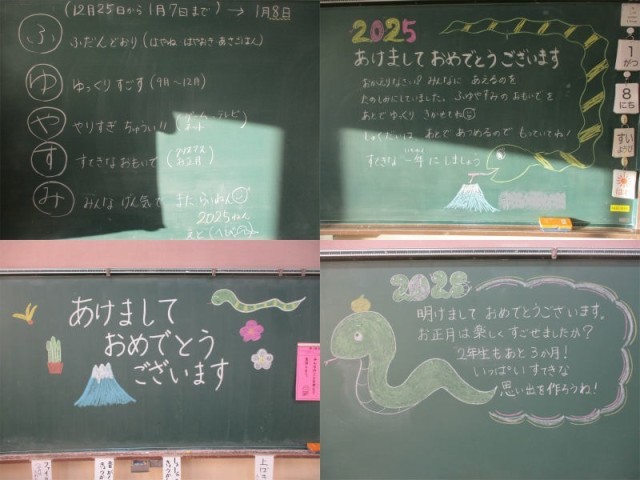 (12月25日から1月7日まで) → 1月8日
ふ ふだんどおり (はやね はやおき あさごはん)
ゆ ゆっくりすごす (9月〜12月)
や やりすぎ ちゅうい!! (ゲーム・テレビ
ネット)
す すてきなおもいで (クリスマス
お正月)
み みんな げん気で また らいねん
2025ねん
えと(へび)
2025
あけまして おめでとうございます
おかえりなさい!! みんなに あえるのを
たのしみにしていました。ふゆやすみの おもいでを
あとで ゆっくり きかせてね
しゅくだいは あとで あつめるので もっていてね!
すてきな 一年 にしましょう
1
がつ
8
にち
すい
ようび
あけまして
おめでとう
ございます
上ばき
2025
明けまして おめでとうございます。
お正月は楽しくすごせましたか?
2年生もあと3か月!
いっぱい すてきな
思い出を作ろうね!